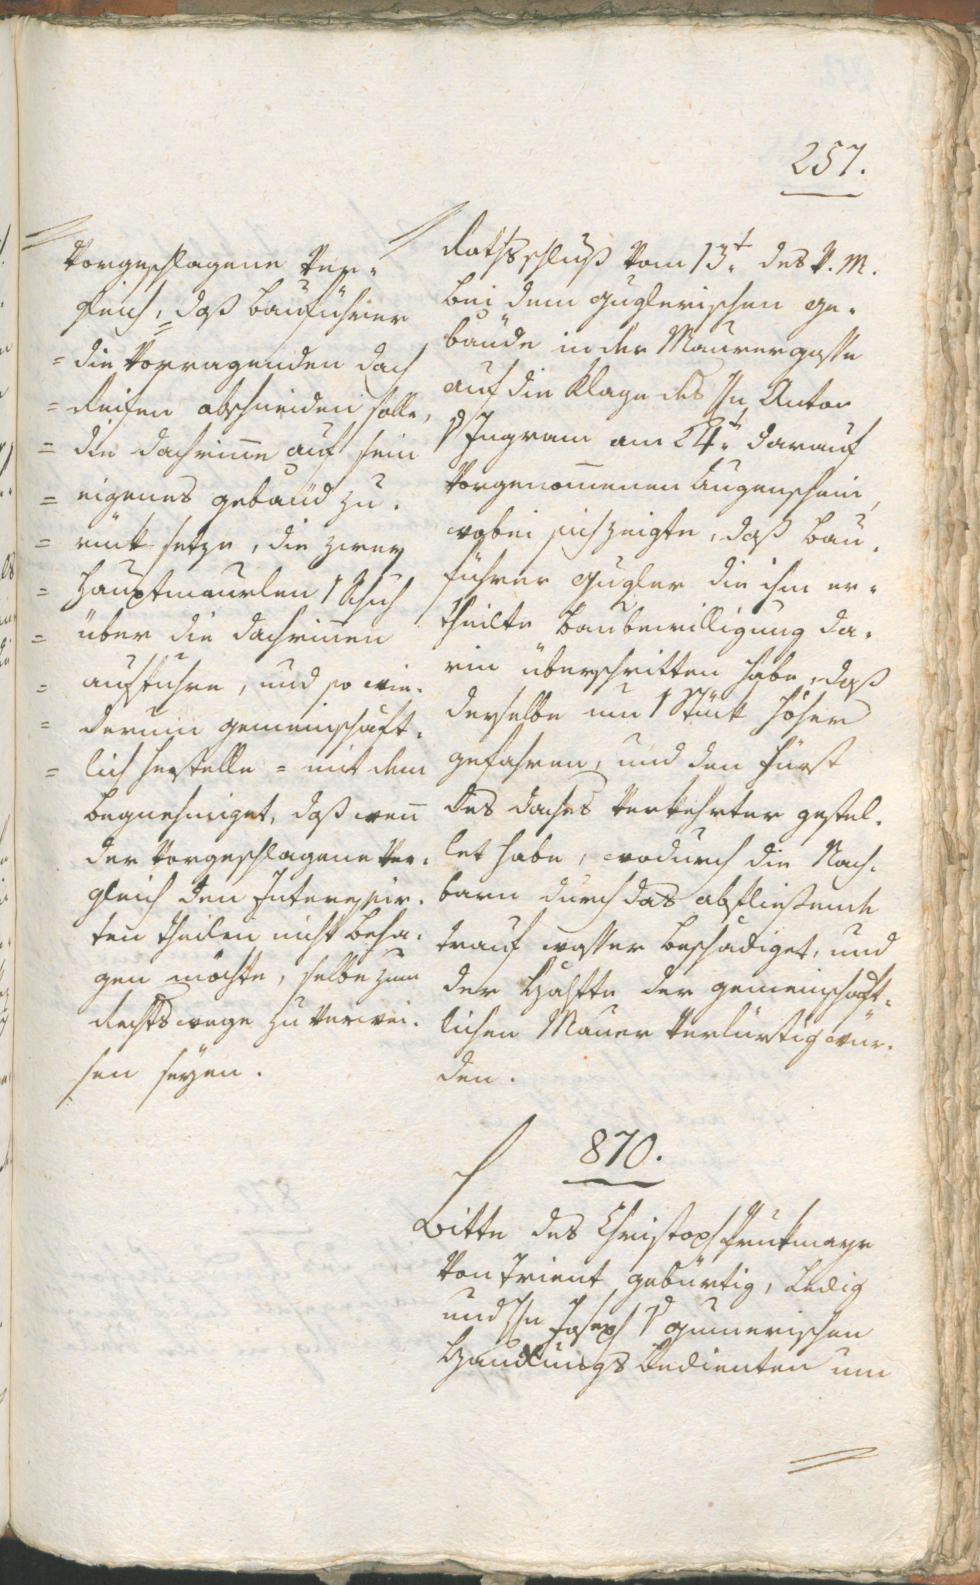 257.
vorgeschlagene Ver¬
gleich, = daß Bauführer
= die vorragenden Dach
= Reifen abschneiden solle,
= die Dachrinne auf sein
= eigenes gebäud zu¬
= rück setze, die zwey
= Hauptmäurlen 1 Schuh
= über die Dachrinnen
= aufführe, und so wie¬
= derum gemeinschäft¬
= lich herstelle = mit dem
begnehmiget, daß wenn
der vorgeschlagene Ver¬
gleich den Interessir¬
ten Theilen nicht beha¬
gen möchte, selbe zum
Rechtswege zu verwei¬
sen seyen.
Rathsschluß vom 13t. des v. M.
bei dem guglerischen ge¬
bäude in der Maurergasse
auf die Klage des Hn Anton
v Ingram am 24t. darauf
vorgenommenen Augenschein,
wobei sich zeigte, daß Bau¬
führer Gugler die ihm er¬
theilte Baubewilligung da¬
rin überschritten habe, daß
derselbe um 1 Stück höher
gefahren, und den Fürst
des Daches verkehrter gestel¬
let habe, wodurch die Nach¬
barn durch das abfließende
Trauf wasser beschädiget, und
der Hälfte der gemeinschäft¬
lichen Mauer verlürstig wür¬
den.
870.
Bitte des Christoph Prukmayr
von Trient gebürtig, Ledig
und Hn Joseph v gumerischen
Handlungs Bedienten um